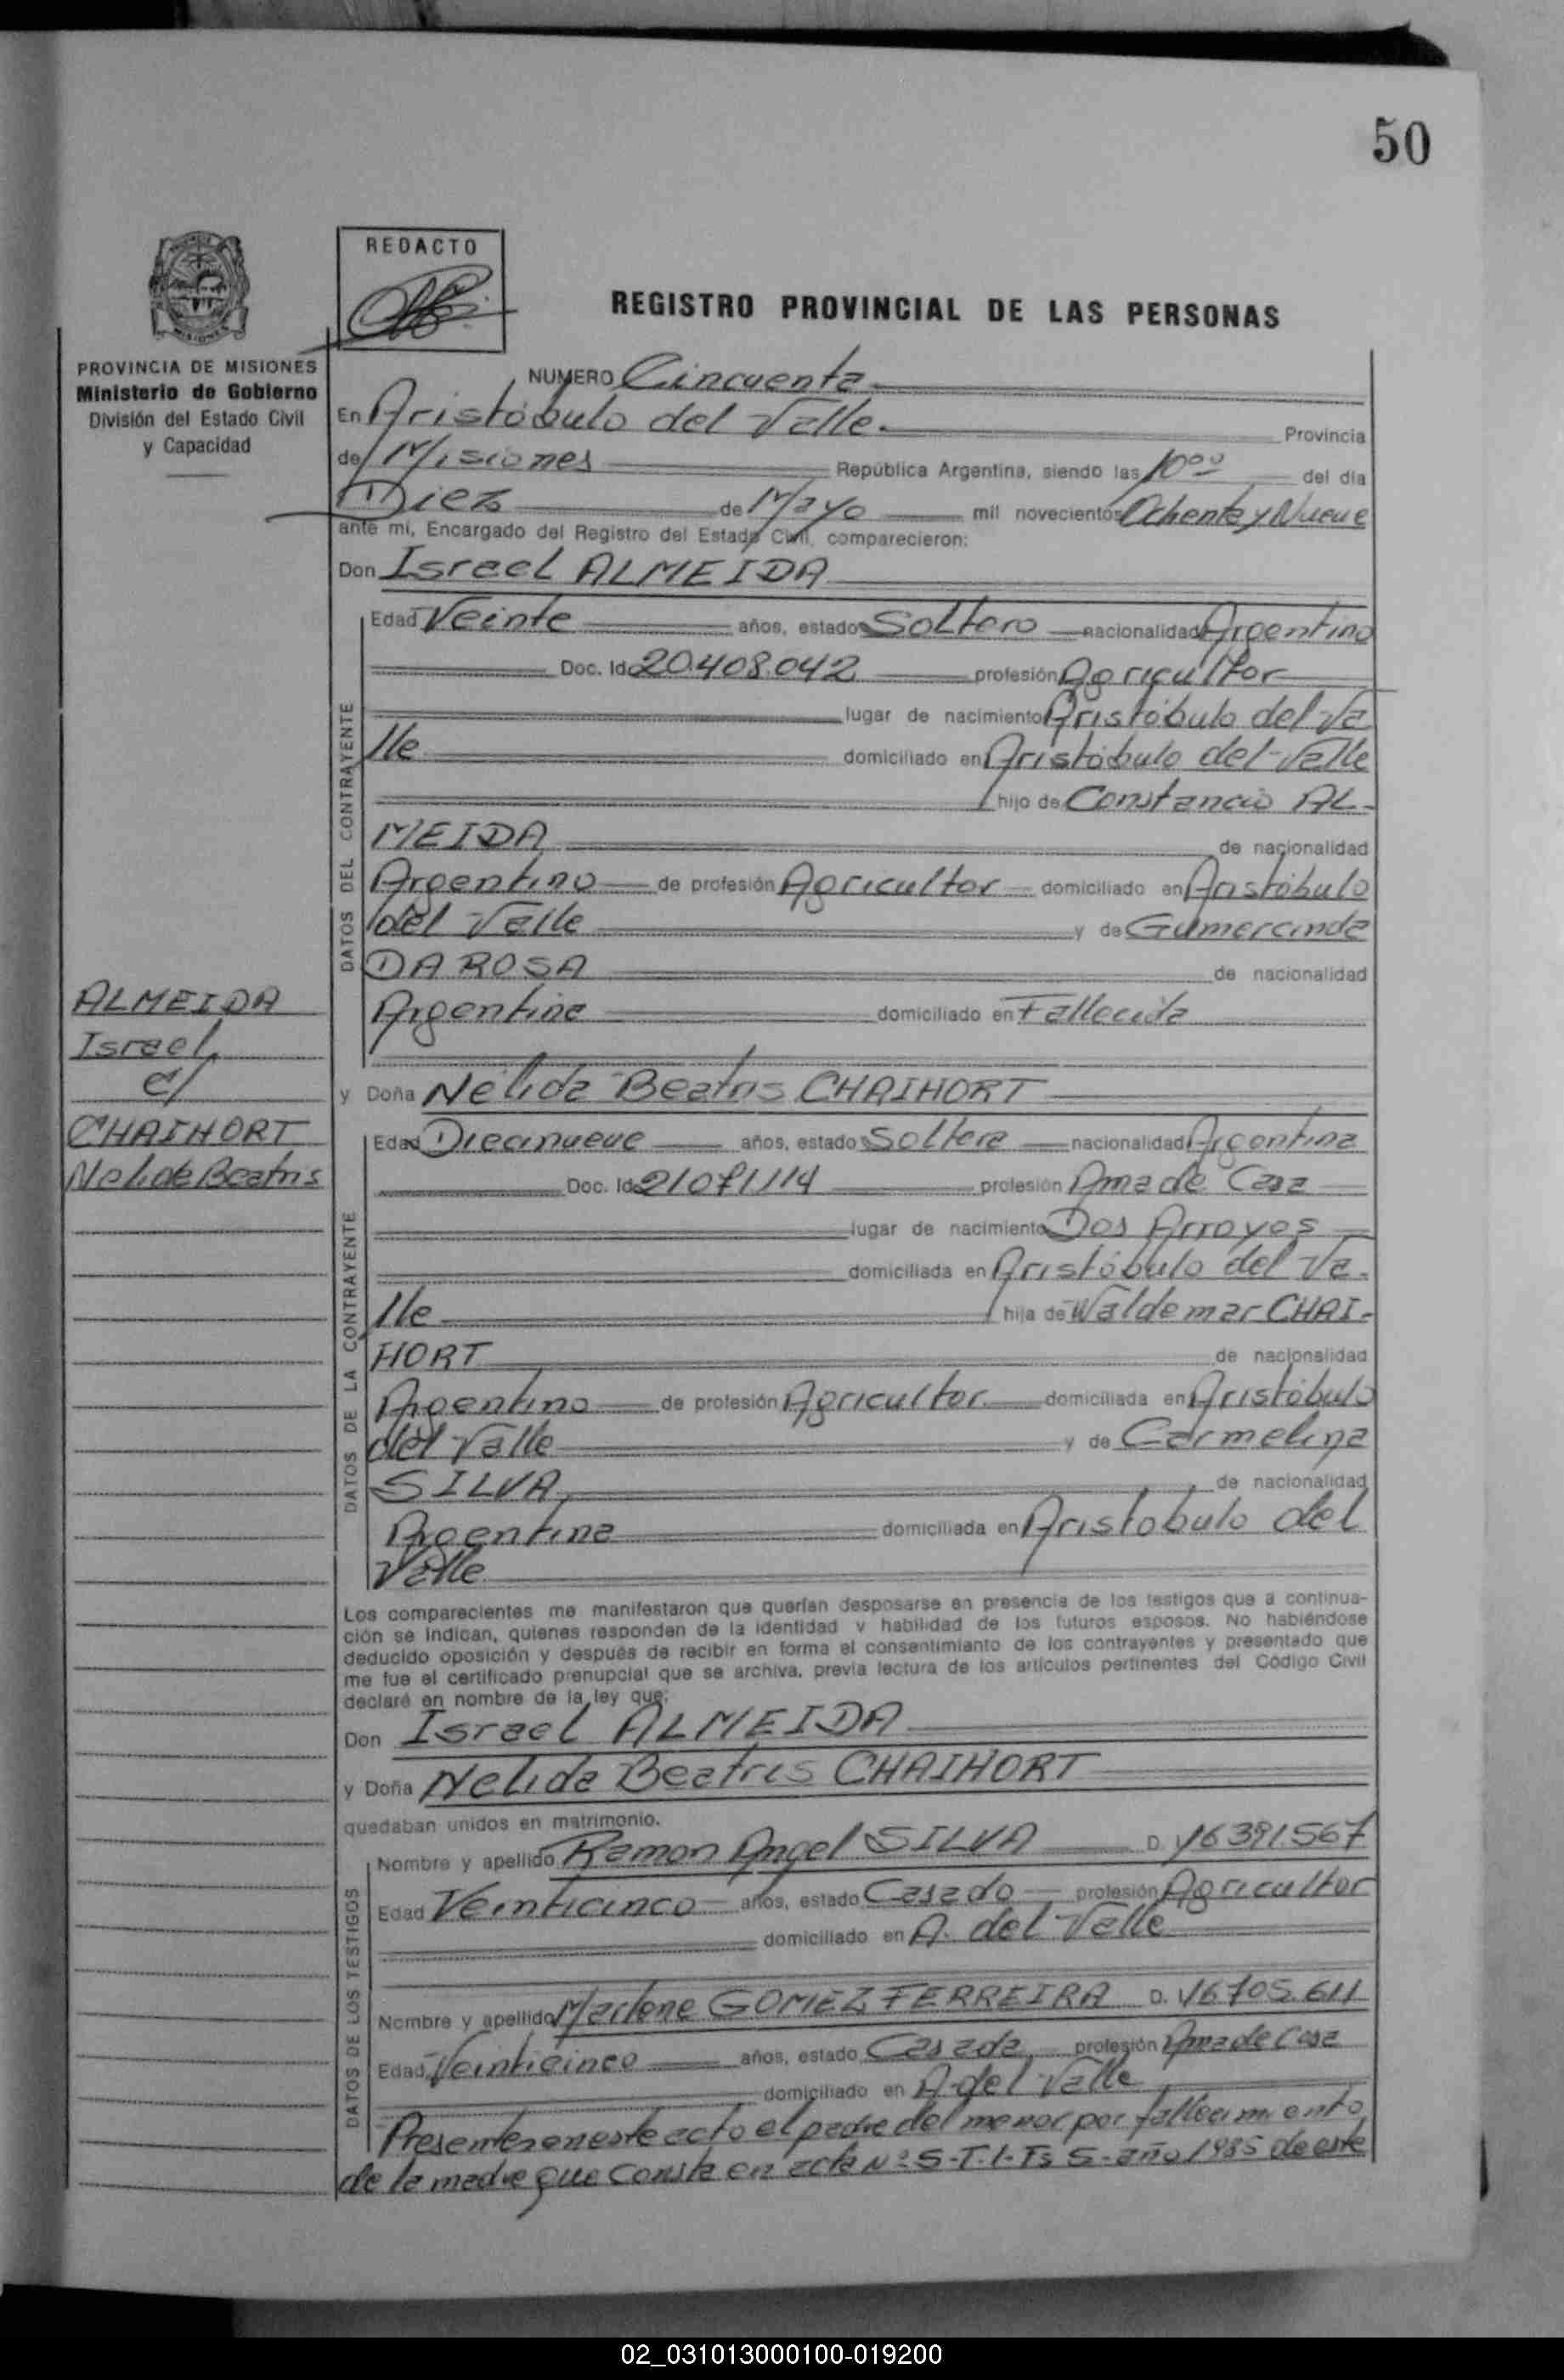 50
REDACTO
REGISTRO PROVINCIAL DE LAS PERSONAS
PROVINCIA DE MISIONES
Ministerio de Gobierno
División del Estado Civil
y Capacidad
NUMERO Cincuenta
En Aristóbulo del Valle. Provincia
de Misiones República Argentina, siendo las 10⁰⁰ del día
Diez de Mayo mil novecientos Ochenta y Nueve
ante mi, Encargado del Registro del Estado Civil, comparecieron:
Don Israel ALMEIDA
DATOS DEL CONTRAYENTE
Edad Veinte años, estado Soltero nacionalidad Argentino
Doc. Id. 20.408.042 profesión Agricultor
lugar de nacimiento Aristóbulo del Va
lle domiciliado en Aristóbulo del Valle
hijo de Constancio AL-
MEIDA de nacionalidad
Argentino de profesión Agricultor domiciliado en Aristóbulo
del Valle y de Gumercinda
DA ROSA de nacionalidad
Argentina domiciliado en Fallecida
ALMEIDA
Israel
c/
CHAIHORT
Nelida Beatris
y Doña Nelida Beatris CHAIHORT
DATOS DE LA CONTRAYENTE
Edad Diecinueve años, estado Soltera nacionalidad Argentina
Doc. Id. profesión Ama de Casa
lugar de nacimiento Dos Arroyos
domiciliada en Aristóbulo del Va-
lle hija de Waldemar CHAI-
HORT de nacionalidad
Argentino de profesión Agricultor domiciliada en Aristóbulo
del Valle y de Carmelina
SILVA de nacionalidad
Argentina domiciliada en Aristobulo del
Valle
Los comparecientes me manifestaron que querían desposarse en presencia de los testigos que a continua-
ción se indican, quienes responden de la identidad y habilidad de los futuros esposos. No habiéndose
deducido oposición y después de recibir en forma el consentimiento de los contrayentes y presentado que
me fue el certificado prenupcial que se archiva, previa lectura de los artículos pertinentes del Código Civil
declaré en nombre de la ley que:
Don Israel ALMEIDA
y Doña Nelida Beatris CHAIHORT
quedaban unidos en matrimonio.
DATOS DE LOS TESTIGOS
Nombre y apellido Ramon Angel SILVA D. 16391.567
Edad Veinticinco años, estado Casado profesión Agricultor
domiciliado en A. del Valle
Nombre y apellido Marlene GOMEZ FERREIRA D. 16705.611
Edad Veinticinco años, estado Casada profesión Ama de Casa
domiciliado en A. del Valle
Presente en este acto el padre del menor por fallecimiento
de la madre que consta en acta Nº 5-T.I-Fs 5-año 1985 de este
02_031013000100-019200